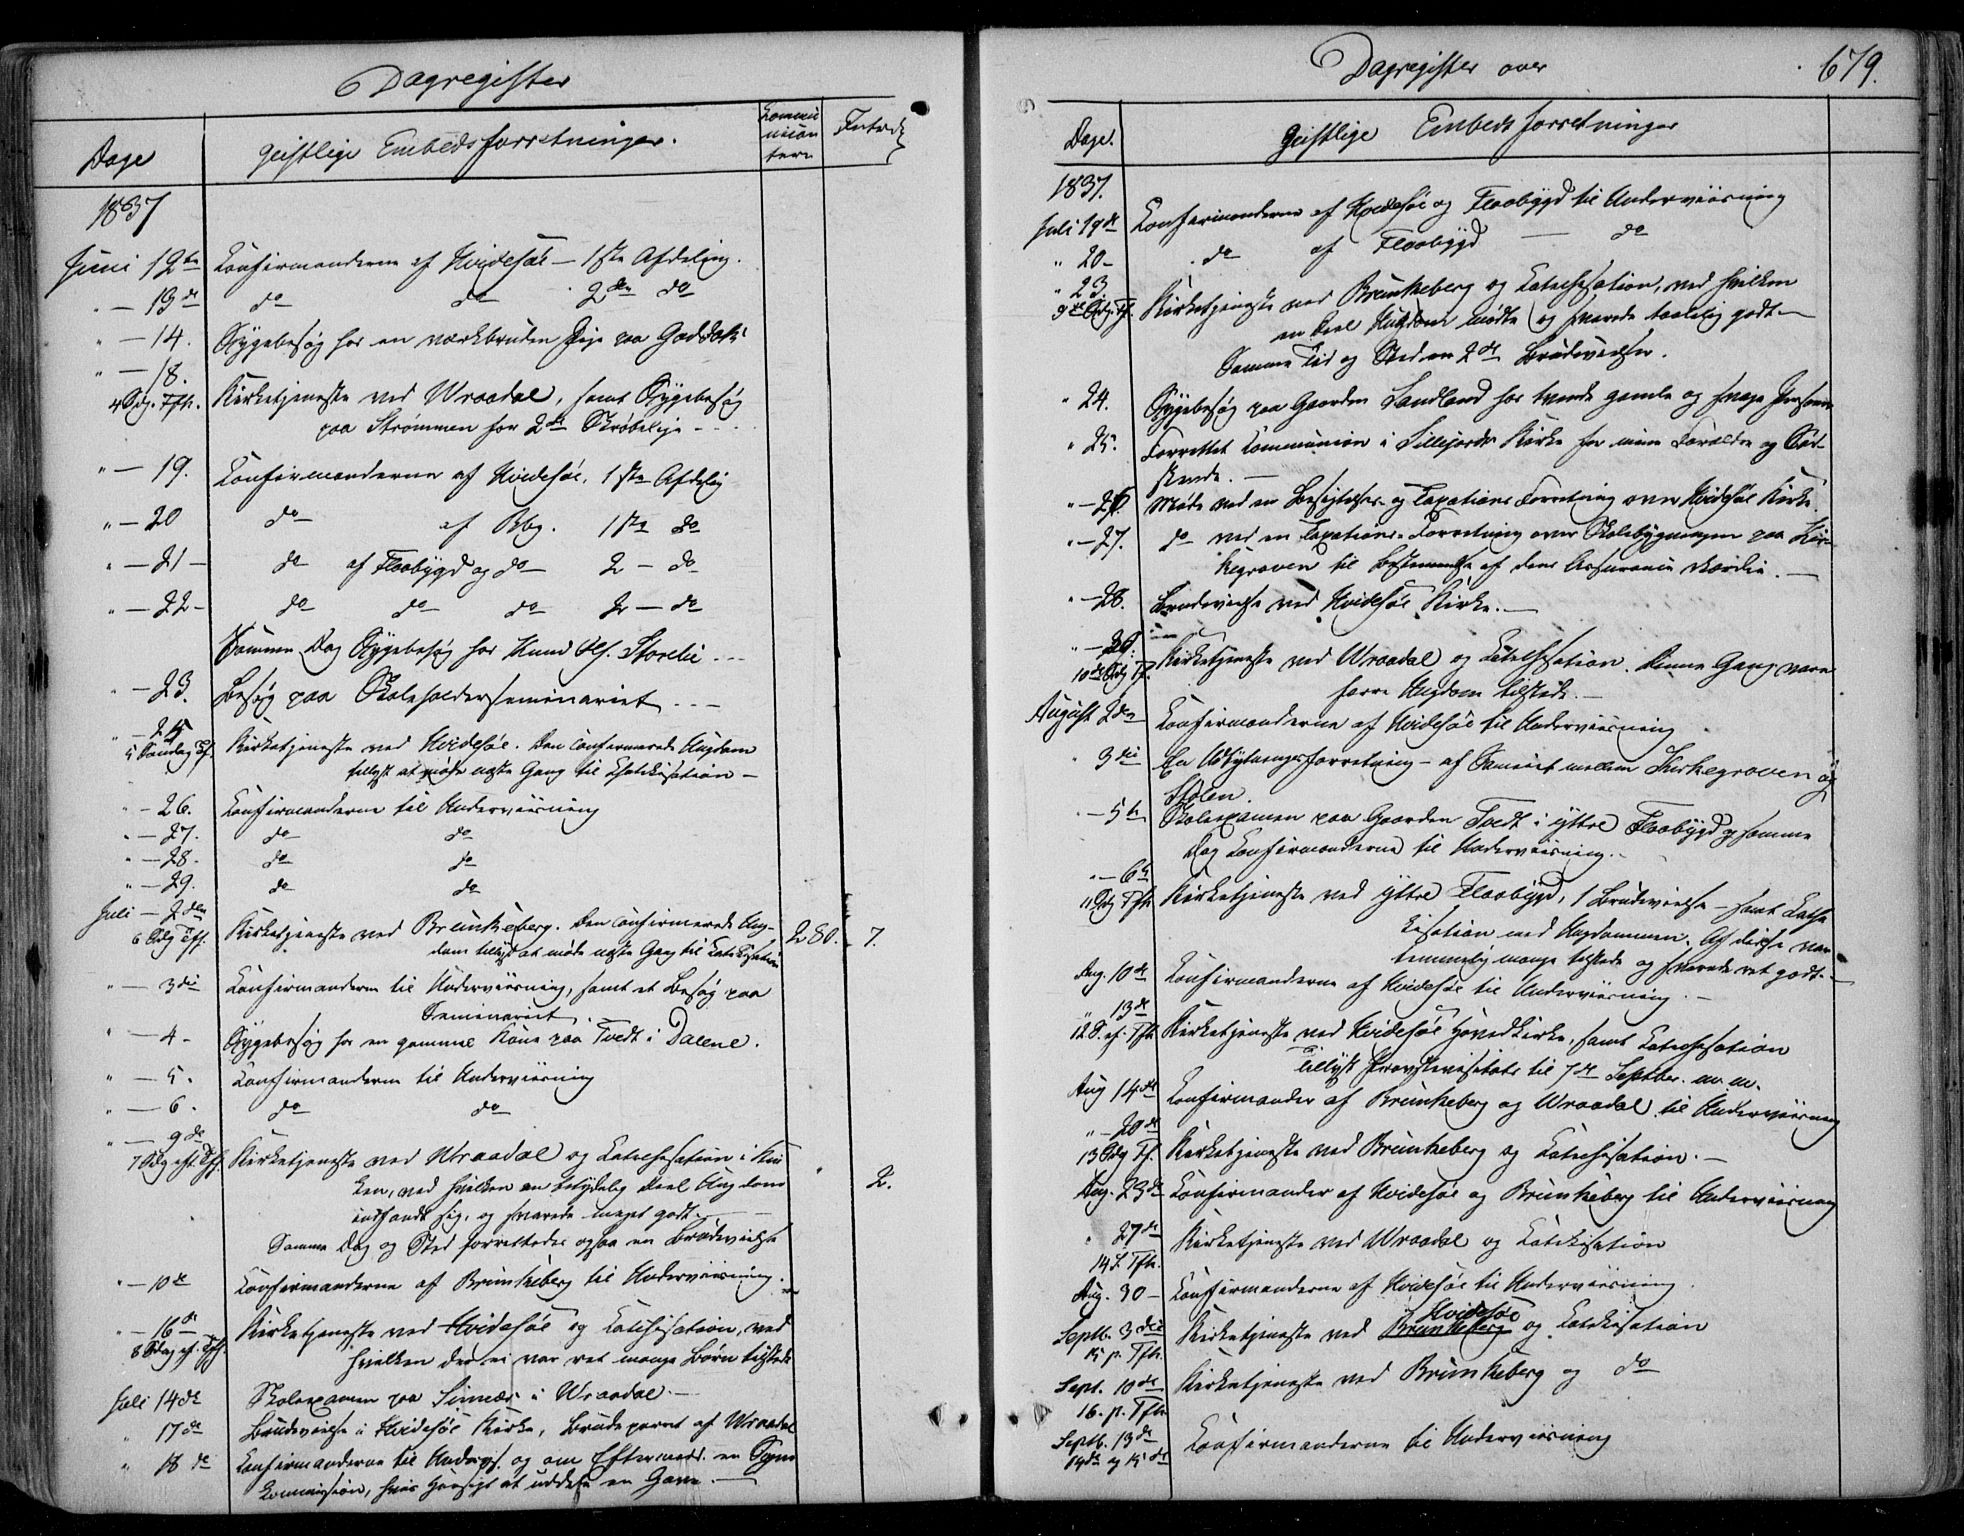 Dagregister
Dage
geistlige Embedsforretninger.
Communicantere
1837
Juni 12te Confirmanderne af Hvidesöe — 1ste Afdeling.
" — 13de do do 2den do
" — 14. Sygebesøg hos en værkbruden Pige paa
" — 18.
4 Sdg. Tfh. Kirketjeneste ved Wraadal, samt Sygebesøg
paa Strømmen hos 2de Skrøbelige
" — 19. Confirmanderne af Hvidesöe, 1ste Afdelig
" — 20 do af Bbg. 1ste do
" — 21 — do af Flaabygd og do — 2 — do
" — 22 — do do do 2 — do
Samme Dag Sygebesøg hos Knud Ols. Storlie
" — 23. Besøg paa Skoleholderseminariet
" — 25
5 Søndag Tf. Kirketjeneste ved Hvidesöe. Den confirmerede Ungdom
tillyst at møde næste Gang til Chatekisation —
" — 26. Confirmanderne til Underviisning
" — 27. do do
" — 28. do do
" — 29. do do
Juli — 2den
6 Sdg Tf. Kirketjeneste ved Brunkeberg. Den confirmerede Ung- 280. 7.
dom tillyst at møde næste Gang til Catekisation
" — 3die Confirmanderne til Underviisning, samt et Besøg paa
Seminariet.
" — 4 — Sygebesøg hos en gammel Kone paa Tvedt i Dalene.
" — 5. Confirmanderne til Underviisning
" — 6. do do
" — 9de
7 Sdg eft. Tfh. Kirketjeneste ved Wraadal og Catechisation i Kir- " 2.
ken, ved hvilken en betydelig Deel Ungdom
indfandt sig, og svarede meget godt. —
Samme Dag og Sted forrettedes ogsaa en Brudevielse
" — 10de Confirmanderne af Brunkeberg til Underviisning.
" — 16de
8 Sdag ef. Tfh. Kirketjeneste ved Hvidesöe og Catechisation, ved
hvilken der ei var ret mange Børn tilstede
Juli 14de Skoleexamen paa Sinnæs i Wraadal. —
" 17de Brudevielse i Hvidesöe Kirke, Brudeparret af Wraadal
" 18de Confirmanderne til Underv. og om Eftermidd. en
Commission, hvis Hensigt at uddele en Gave. —
Dagregister over 679.
Dage. geistlige Embedsforretninger
1837.
Juli 19de Confirmanderne af Hvidesöe og Flaabygd til Underviisning
" 20 — do af Flaabygd — do
" 23
9de Sdg. Tf. Kirketjeneste ved Brunkeberg og Catechisation, ved hvilken
en Deel Ungdom mødte og svarede taalelig godt —
Samme Tid og Sted en 2de Brudevielser.
" 24. Sygebesøg paa Gaarden Sandland hos tvende gamle og svage Personer
" 25. Forrettet Communion i Sillejords Kirke for mine Forældre og Søs-
kende. —
" — 26. Møde ved en Besigtelses- og Taxations Forretning over Hvidesöe Kirke.
" — 27. do ved en Taxations-Forretning over Skolebygningen paa Kir-
kegraven til Bestemmelse af dens Assurance Værdie. —
" — 28. Brudevielse ved Hvidesöe Kirke. —
" — 30.
10de Sdg Tf. Kirketjeneste ved Wraadal og Catechisation. Denne Gang vare
færre Ungdom tilstede. —
August 2den Confirmanderne af Hvidesöe til Underviisning
" 3die En Udskiftningsforretning — af mellem Kirkegraven og
Skolen.
" — 5te Skoleexamen paa Gaarden Tvedt i yttre Flaabygd og samme
Dag Confirmanderne til Underviisning. —
" — 6te
11 Sdg Tfh. Kirketjeneste ved yttre Flaabygd, 1 Brudevielse — samt Cathe-
kisation med Ungdommen. Af disse var
temmelig mange tilstede og svarede ret godt. —
Aug. 10de Confirmanderne af Hvidesöe til Underviisning. —
" 13de
12 S. ef. Tfh. Kirketjeneste ved Hvidesöe Hovedkirke, samt Catechisation
Tillyst Provstevisitats til 7de Septber. m. m.
Aug 14de Confirmander af Brunkeberg og Wraadal til Underviisning
" — 20de
13 Sdg Tf. Kirketjeneste ved Brunkeberg og Catechisation. —
Aug. 23de Confirmander af Hvidesöe og Brunkeberg til Underviisning
" 27de
14 S. Tfh. Kirketjeneste ved Wraadal og Catekisation
Aug. 30 — Confirmanderne af Hvidesöe til Underviisning.
Hvidesöe
Septb. 3die Kirketjeneste ved Brunkeberg og Catekisation
15 p. Tfh.
Sept. 10de Kirketjeneste ved Brunkeberg og do
16. p. Tfh.
Septb. 13de Confirmanderne til Underviisning
14de og 15de